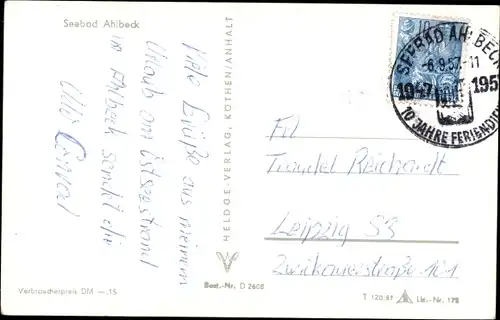 Seebad Ahlbeck
Viele Grüße aus meinem
Urlaub am Ostseestrand
in Ahlbeck sendet dir
HELDGE-VERLAG, KÖTHEN/ANHALT
10
SEEBAD AHLBECK
-6.9.57.-11
1947 195
10 JAHRE FERIENDI
Frl
Traudel Reichardt
Leipzig S3
Zwickauerstraße 161
Verbraucherpreis DM —.15
Best.-Nr. D 2608
T 120/57
Liz.-Nr. 178